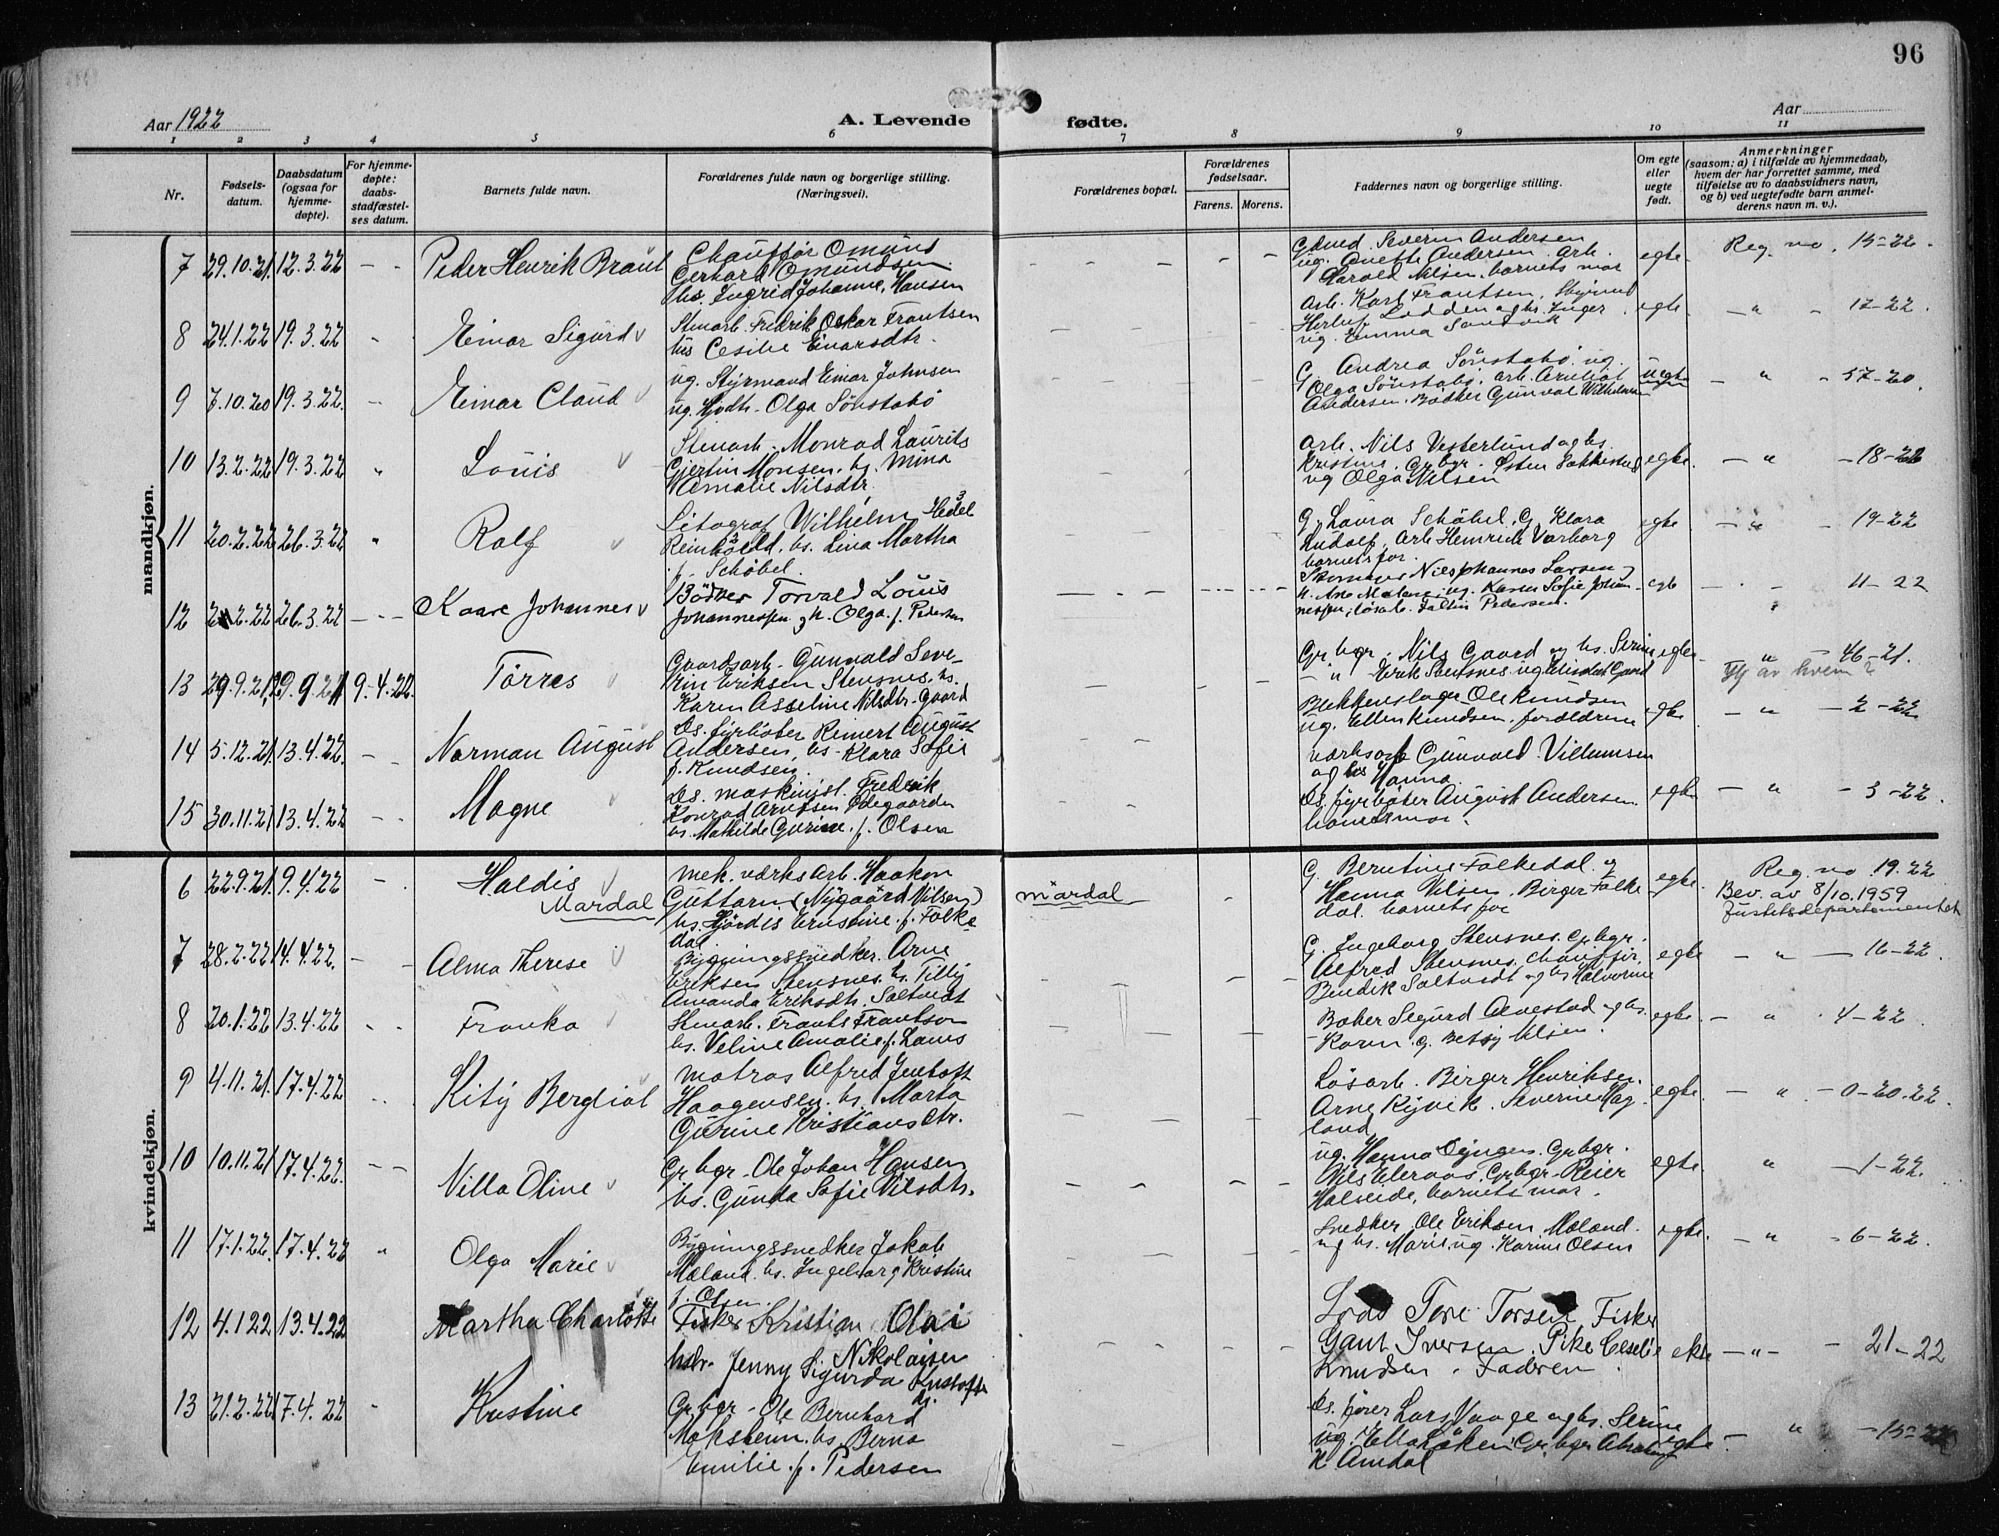 96
Aar 1922
A. Levende fødte.
Aar
1 2 3 4 5 6 7 8 9 10 11
Nr.
Fødsels-
datum.
Daabsdatum
(ogsaa for
hjemme-
døpte).
For hjemme-
døpte:
daabs-
stadfæstel-
ses datum.
Barnets fulde navn.
Forældrenes fulde navn og borgerlige stilling.
(Næringsvei).
Forældrenes bopæl.
Forældrenes
fødselsaar.
Farens. Morens.
Faddernes navn og borgerlige stilling.
Om egte
eller
uegte
født.
Anmerkninger
(saasom: a) i tilfælde av hjemmedaab,
hvem der har forrettet samme, med
tilføielse av to daabsvidners navn,
og b) ved uegtefødte barn anmel-
derens navn m. v.).
mandkjøn.
7 29.10.21. 12.3.22 Peder Henrik Braut
Chauffør Omund
Gerhard Omundsen
hs. Ingrid Johanne, Hansen
Severin Andersen
ug. Anette Andersen. Arb.
Harald Nilsen, barnets mor
egte. Reg. no. 15-22.
8 24.1.22 19.3.22 Einar Sigurd
Stenarb. Fredrik Oskar Frantsen
hs Cesilie Einarsdtr.
Arb. Karl Frantsen, Styrmd
Herluf Lodden og hs. Inger
ug. Emma Sandvik
egte - " 12-22.
9 7.10.20 19.3.22. Einar Claud
ug. Styrmand Einar Johnsen
ug. Hjdtr. Olga Sönstabö
G. Andrea Sönstabö, ug.
Olga Sönstabö, arb. Arntzat
Andersen. Bödker Gunval Wilhelmsen
uegte - " - 57-20.
10 13.2.22 19.3.22 " Louis
Stenarb. Monrad Laurits
Gjertin Monsen. hs. Mina
Amalie Nilsdtr.
Arb. Nils Vesterlund og hs.
Kristine. Grbgr. Østen
ug Olga Nilsen
egte. - " - 18-22
11 20.2.22 26.3.22 " Rolf
Litograf Wilhelm Hedel
Reinholdt. hs. Lina Martha
f. Schöbel.
G. Laura Schöbel, G. Klara
Ludolf, Arb. Heinrich Varborg
barnets far.
egte - " - 19-22
12 2.22 26.3.22 Kaare Johannes
Bödker Torvald Louis
Johannessen og h. Olga f. Pedersen
Skomager Nils Johannes Larsen og
h. Ane Malene, ug. Karen Sofie Johan-
nessen, lösarb. Pedersen.
egte 11-22
13 29.9.21 29.9.21 9.4.22. Tórres
Gaardsarb. Gunvald Seve-
rin Eriksen Stensnes. hs.
Karen Asseline Nilsdtr. Gaard
Grbgr. Nils Gaard og hs. Serine
- " Erik Stensnes ug Gaard
egte. " - 46-21.
Hj av hvem?
14 5.12.21. 13.4.22. Norman August
Ds. fyrböter Reinert August
Andersen, hs. Klara Sofie
f. Knudsen.
Blikkenslager Ole Knudsen
ug. Ellen Knudsen. forældrene
egte - " - 2-22
15 30.11.21 13.4.22 Magne
Ds. maskinist. Frederik
Konrad Arntsen Ødegaarden
hs. Mathilde Gurine. f. Olsen
Værksarb Gunvald Villumsen
og hs Hanna.
Ds. fyrböter August Andersen.
barnets mor.
egte - " - 3-22.
kvindekjøn.
6 22.9.21. 9.4.22 Haldis
Mardal
Mek. værks Arb. Haakon
Guttorm (Nygaard Nilsen)
hs. Hjördis Ernstine. f. Falke-
dal.
mårdal
G. Berntine Falkedal og
Hanna Nilsen. Birger Falke
dal. barnets far
egte. Reg. no. 19.22
Bev. av 8/10.1959
Justitsdepartementet
7 28.2.22 14.4.22. Alma Therese
Bygningssnedker. Arne
Eriksen Stensnes. hs. Tilly
Amanda Eriksdtr. Saltvedt
G. Ingeborg Stensnes. Grbgr.
Alfred Stensnes. Chauffør
Bendik Saltvedt og hs Halvorine
egte - " - 16-22.
8 20.1.22 13.4.22 Franka
Stenarb. Frants Frantsen
hs. Veline Amalie f. Larns
Baker Sigurd Alvestad og hs.
Karen. G. Betsy Nilsen.
egte. - " . 4-22.
9 4.11.21. 17.4.22 Kity Bergliot
Matros Alfred Jentoft
Haagensen. hs. Marta
Gurine Kristiansdtr.
Lösarb. Birger Henriksen.
Arne Ryvik. Severine Hag-
land
egte. - " - 0-20.22
10 10.11.21 17.4.22. Villa Oline
Grbgr. Ole Johan Hansen
hs. Gunda Sofie Nilsdtr.
ug. Hanna Grbgr.
Nils Grbgr. Reier
Halseide, barnets mor.
egte. " -1-22.
11 17.1.22. 17.4.22 " Olga Marie
Bygningssnedker Jakob
Mæland. hs. Ingeborg Kristine
f. Olsen.
Snedker. Ole Eriksen Mæland.
og hs. Marie ug. Karine Olsen
egte. - " - 6-22.
12 4.1.22 13.4.22 Martha Charlotte
Fisker Kristian Olai
Nikolaisen
hstr. Jenny Sigurda Kustofte
ds.
Tore Torsen Fisker
Gaut Iversen. Pike Ceselie
Knudsen. Faderen.
ekte - " - 21-22
13 21.2.22 17.4.22 Kristine
Grbgr. Ole Bernhard
Moksheim. hs. Berna
Emilie f. Pedersen
Ds. fører Lars Vaage og hs. Serine
ug. Ella Löken. Grbgr.
K Amdal
egte. " - 15-22